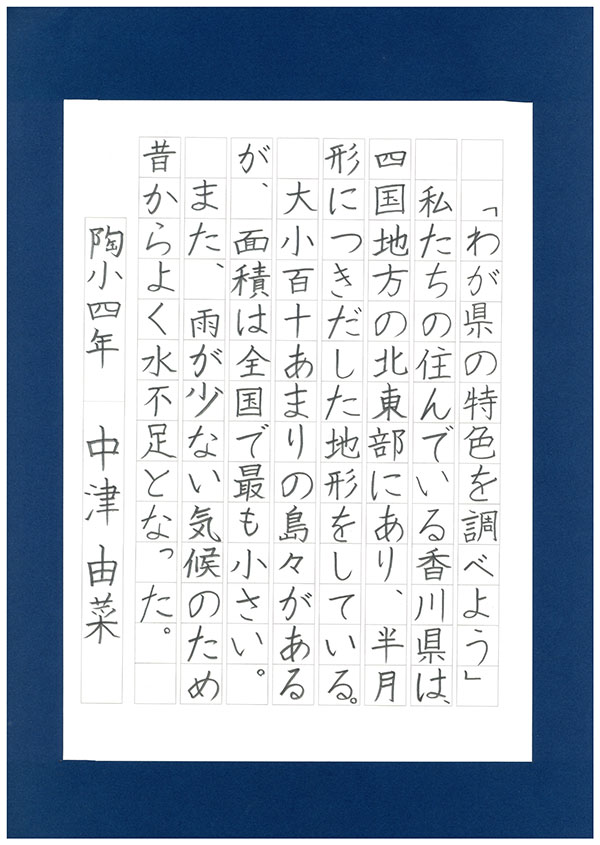 「わが県の特色を調べよう」
私たちの住んでいる香川県は、
四国地方の北東部にあり、半月
形につきだした地形をしている。
大小百十あまりの島々がある
が、面積は全国で最も小さい。
また、雨が少ない気候のため
昔からよく水不足となった。
陶小四年 中津由菜